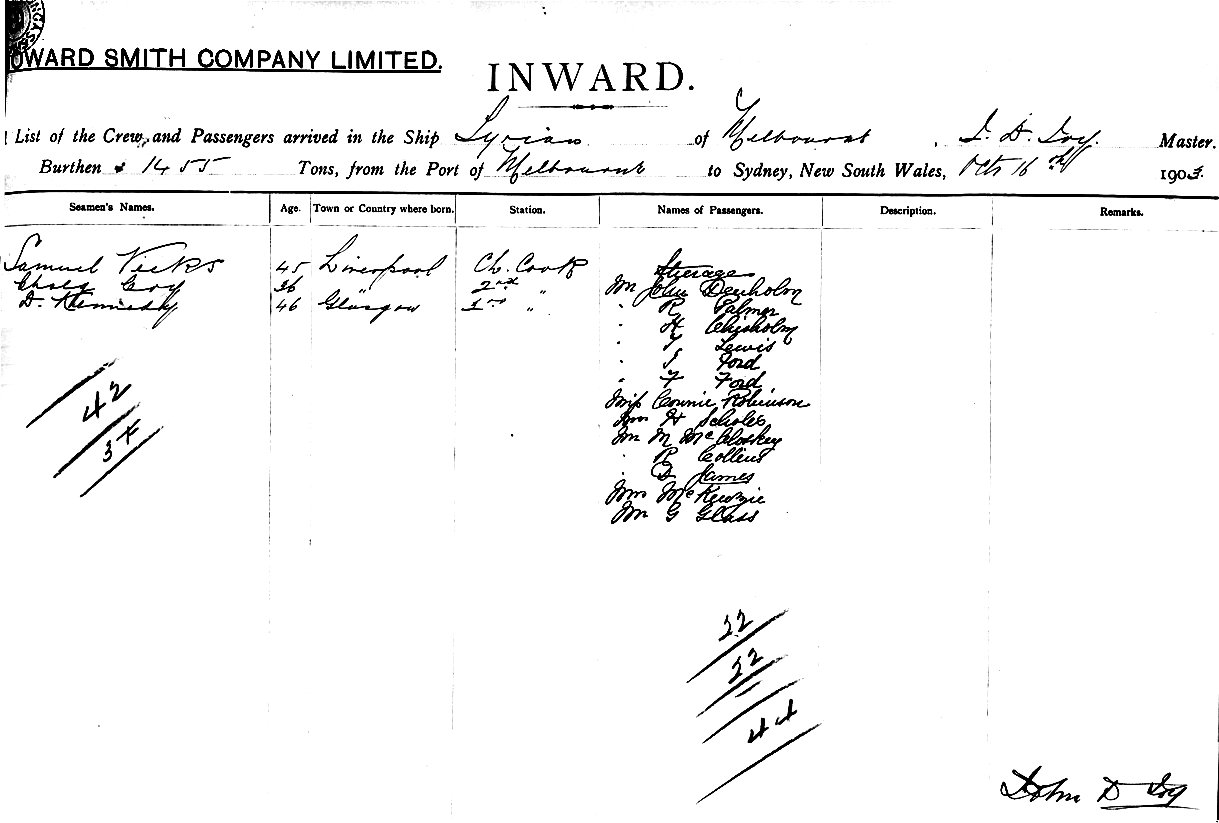 WARD SMITH COMPANY LIMITED.
INWARD.
List of the Crew, and Passengers arrived in the Ship Syrian of Melbourne, J. D. Master.
Burthen 1455 Tons, from the Port of Melbourne to Sydney, New South Wales, Octr 16th 1903.
Seamen's Names. Age. Town or Country where born. Station. Names of Passengers. Description. Remarks.
Samuel Vicks 45 Liverpool Ch. Cook Steerage
Chas 36 " 2nd " Mr John Denholm
D. Kennedy 46 Glasgow 1st " " R Palmer
" A Chisholm
" T Lewis
" J Ford
" F Ford
Miss Connie Robinson
Mrs H Scholes
Mr M McCloskey
" R Collens
" D James
Mrs McKenzie
Mr G Glass
42
34
22
22
44
John D